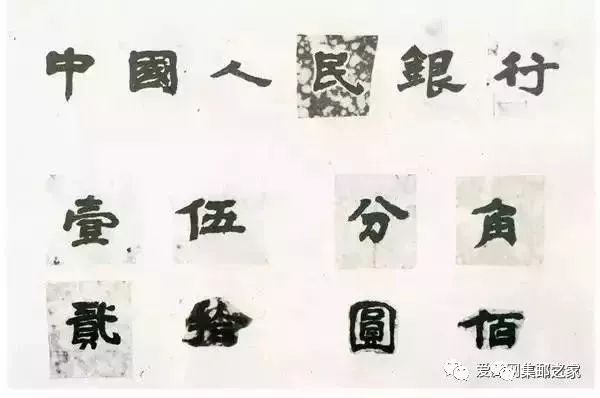 中國人民銀行
壹伍分角
貳拾圓佰
集邮之家